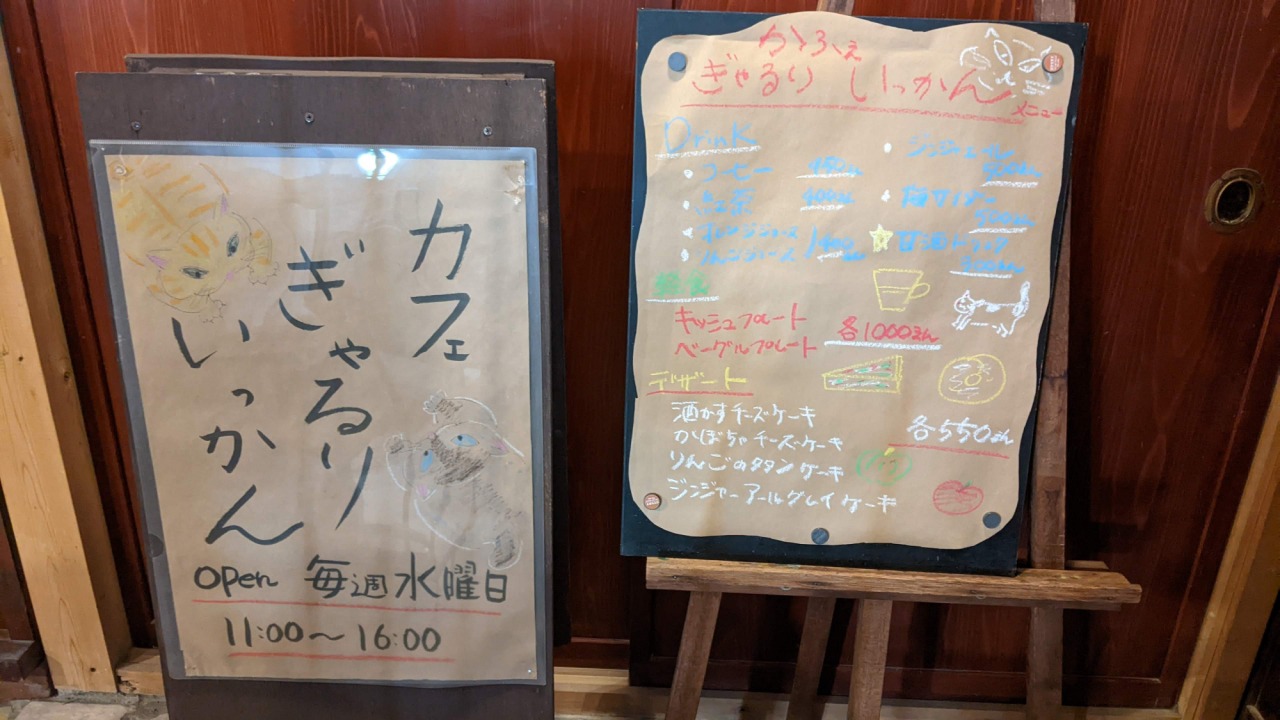 カフェ
ぎゃるり
いっかん
open 毎週水曜日
11:00～16:00
かふぇ
ぎゃるり いっかん
メニュー
Drink
・コーヒー 450えん
・紅茶 400えん
・オレンジジュース
・りんごジュース 400えん
・ジンジャエール
500えん
・梅サイダー
500えん
甘酒
軽食
キッシュプレート
ベーグルプレート
各1000えん
デザート
酒かすチーズケーキ
かぼちゃチーズケーキ
りんごのタタンケーキ
ジンジャーアールグレイケーキ
各550えん